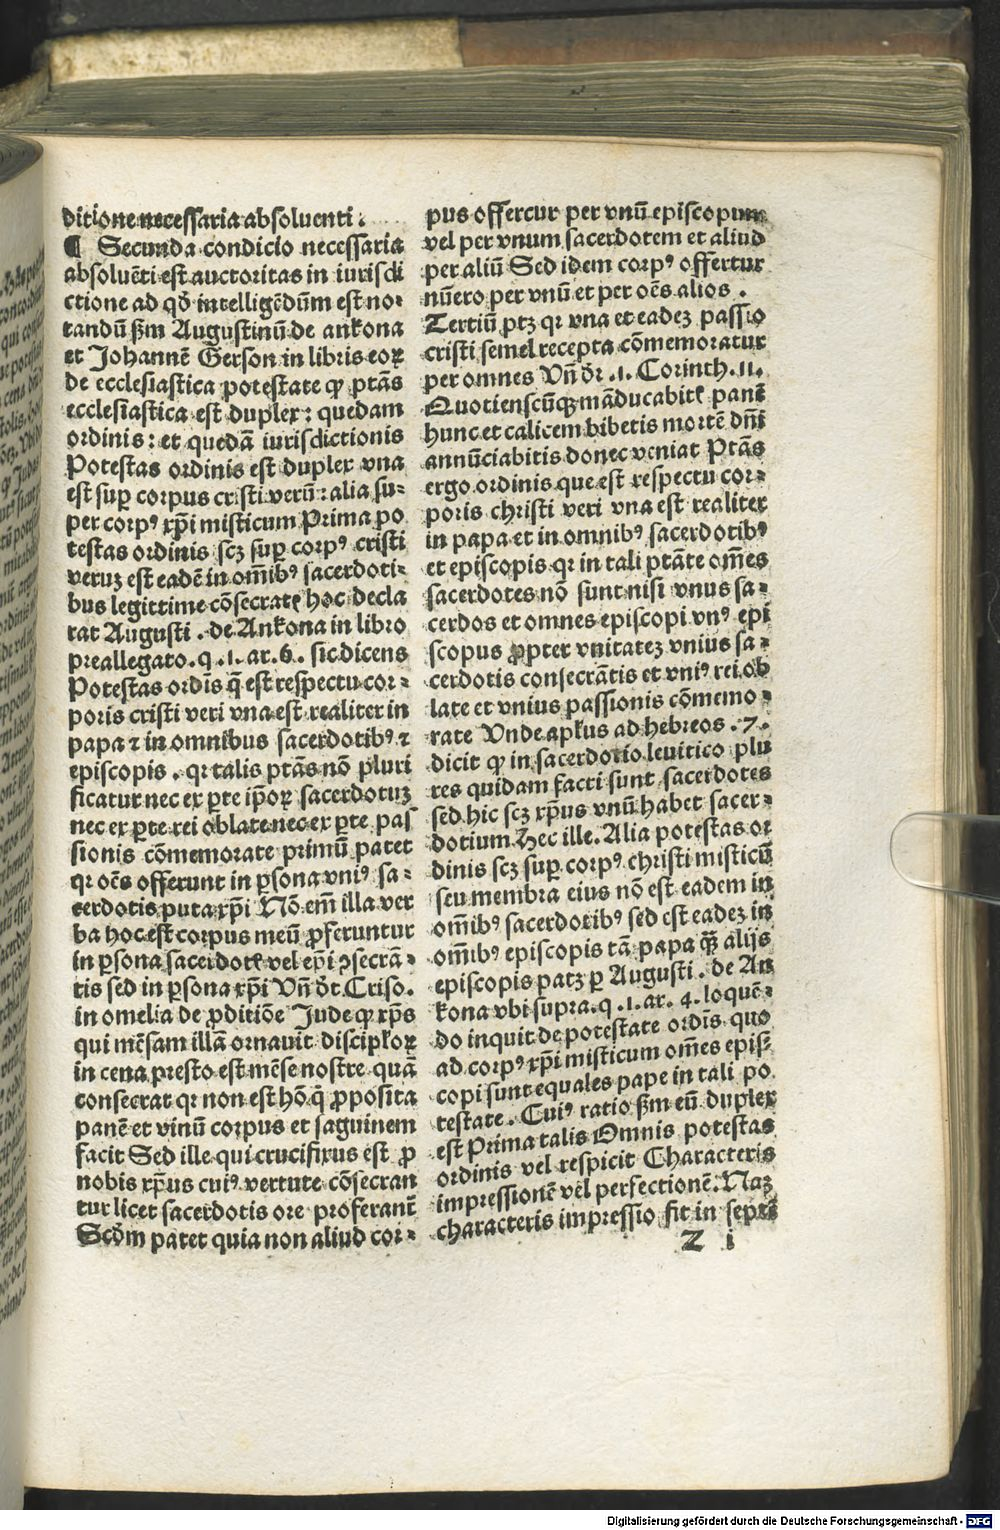 ditione necessaria absoluenti.
¶ Secunda condicio necessaria
absoluēti est auctoritas in iurisdi
ctione ad qd̄ intelligēdūm est no-
tandū ẜm Augustinū de ankona
et Johannē Gerson in libris eoꝝ
de ecclesiastica potestate ꝙ ptās
ecclesiastica est duplex: quedam
ordinis: et quedā iurisdictionis
Potestas ordinis est duplex vna
est suꝑ corpus cristi verū: alia su-
per corpꝰ xp̄i misticum Prima po
testas ordinis scꝫ suꝑ corpꝰ cristi
veruꝫ est eadē in om̄ibꝰ sacerdoti-
bus legittime cōsecratꝭ hoc decla
rat Augusti. de Ankona in libro
preallegato. q .1. ar. 6. sic dicens
Potestas ordīs q̄ est respectu cor-
poris cristi veri vna est realiter in
papa ⁊ in omnibus sacerdotibꝰ ⁊
episcopis. qꝛ talis ptās nō pluri
ficatur nec ex ꝑte ip̄oꝝ sacerdotuꝫ
nec ex ꝑte rei oblate nec ex ꝑte pas
sionis cōmemorate primū patet
qꝛ oēs offerunt in ꝑsona vniꝰ sa-
cerdotis puta xp̄i Nō em̄ illa ver
ba hoc est corpus meū ꝓferuntur
in ꝑsona sacerdotꝭ vel ep̄i ꝯsecrā-
tis sed in ꝑsona xp̄i Vn̄ dt̄. Criso.
in omelia de ꝓditiōe Jude ꝙ xp̄s
qui mēsam illā ornauit discipłoꝝ
in cena presto est mēse nostre quā
consecrat qꝛ non est hō q̄ ꝓposita
panē et vinū corpus et saguinem
facit Sed ille qui crucifixus est ꝓ
nobis xp̄us cuiꝰ vertute cōsecran
tur licet sacerdotis ore proferant̄
Scd̄m patet quia non aliud cor-
pus offercur per vnū episcopum
vel per vnum sacerdotem et aliud
per aliū Sed idem corpꝰ offertur
nūero per vnū et per oēs alios.
Tertiū ptꝫ qꝛ vna et eadeꝫ passio
cristi semel recepta cōmemoratur
per omnes Vn̄ dr̄ .1. Corinth. 11.
Quotienscūqꝫ māducabitꝭ panē
hunc et calicem bibetis mortē dn̄i
annūciabitis donec veniat Ptās
ergo ordinis que est respectu cor-
poris christi veri vna est realiter
in papa et in omnibꝰ sacerdotibꝰ
et episcopis qꝛ in tali ptāte om̄es
sacerdotes nō sunt nisi vnus sa-
cerdos et omnes episcopi vnꝰ epi
scopus ꝓpter vnitateꝫ vnius sa-
cerdotis consecrātis et vniꝰ rei ob
late et vnius passionis cōmemo-
rate Vnde apłus ad hebreos .7.
dicit ꝙ in sacerdotio leuitico plu
res quidam facti sunt sacerdotes
sed hic scꝫ xp̄us vnū habet sacer-
dotium Hec ille. Alia potestas or
dinis scꝫ suꝑ corpꝰ christi misticū
seu membra eius nō est eadem in
om̄ibꝰ sacerdotibꝰ sed est eadeꝫ in
om̄ibꝰ episcopis tā papa qꝫ̄ alijs
episcopis patꝫ ꝑ Augusti. de An
kona vbi supra. q .1. ar. 4. loquē-
do inquit de potestate ordīs quo
ad corpꝰ xp̄i misticum om̄es epis-
copi sunt equales pape in tali po
testate. Cuiꝰ ratio ẜm eū duplex
est Prima talis Omnis potestas
ordinis vel respicit Characteris
impressionē vel perfectionē. Naꝫ
characteris impressio fit in septē
Z i
Digitalisierung gefördert durch die Deutsche Forschungsgemeinschaft - DFG